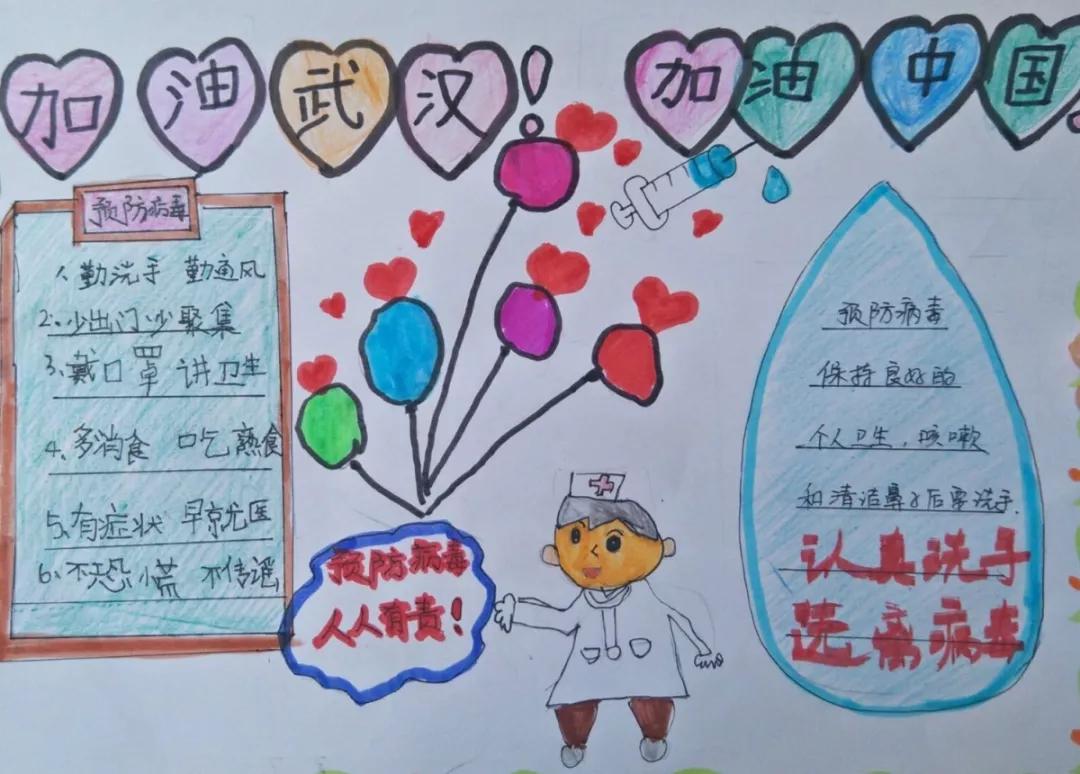 加油武汉!
加油中国
预防病毒
1、勤洗手 勤通风
2、少出门少聚集
3、戴口罩 讲卫生
4、多消食 口吃熟食
5、有症状 早京尤医
6、不恐慌 不传谣
预防病毒
人人有责!
预防病毒
保持良好的
个人卫生,咳嗽
和清洁鼻子后要洗手.
认真洗手
洗离病毒